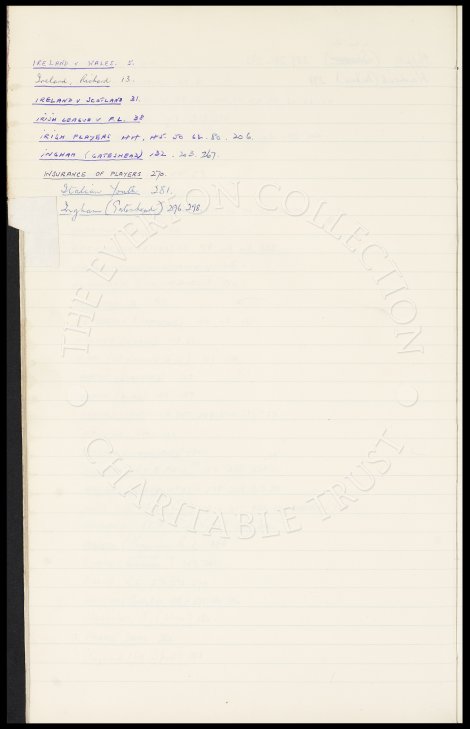 IRELAND v WALES. 5.
Ireland, Richard 13.
IRELAND v SCOTLAND 31.
IRISH LEAGUE v F.L. 38
IRISH PLAYERS 44, 45 50 62. 80. 206.
INGHAM (GATESHEAD) 132. 243. 267.
INSURANCE OF PLAYERS 270.
Italian Youth 281.
Ingham (Gateshead) 296. 298.
THE EVERTON COLLECTION
CHARITABLE TRUST